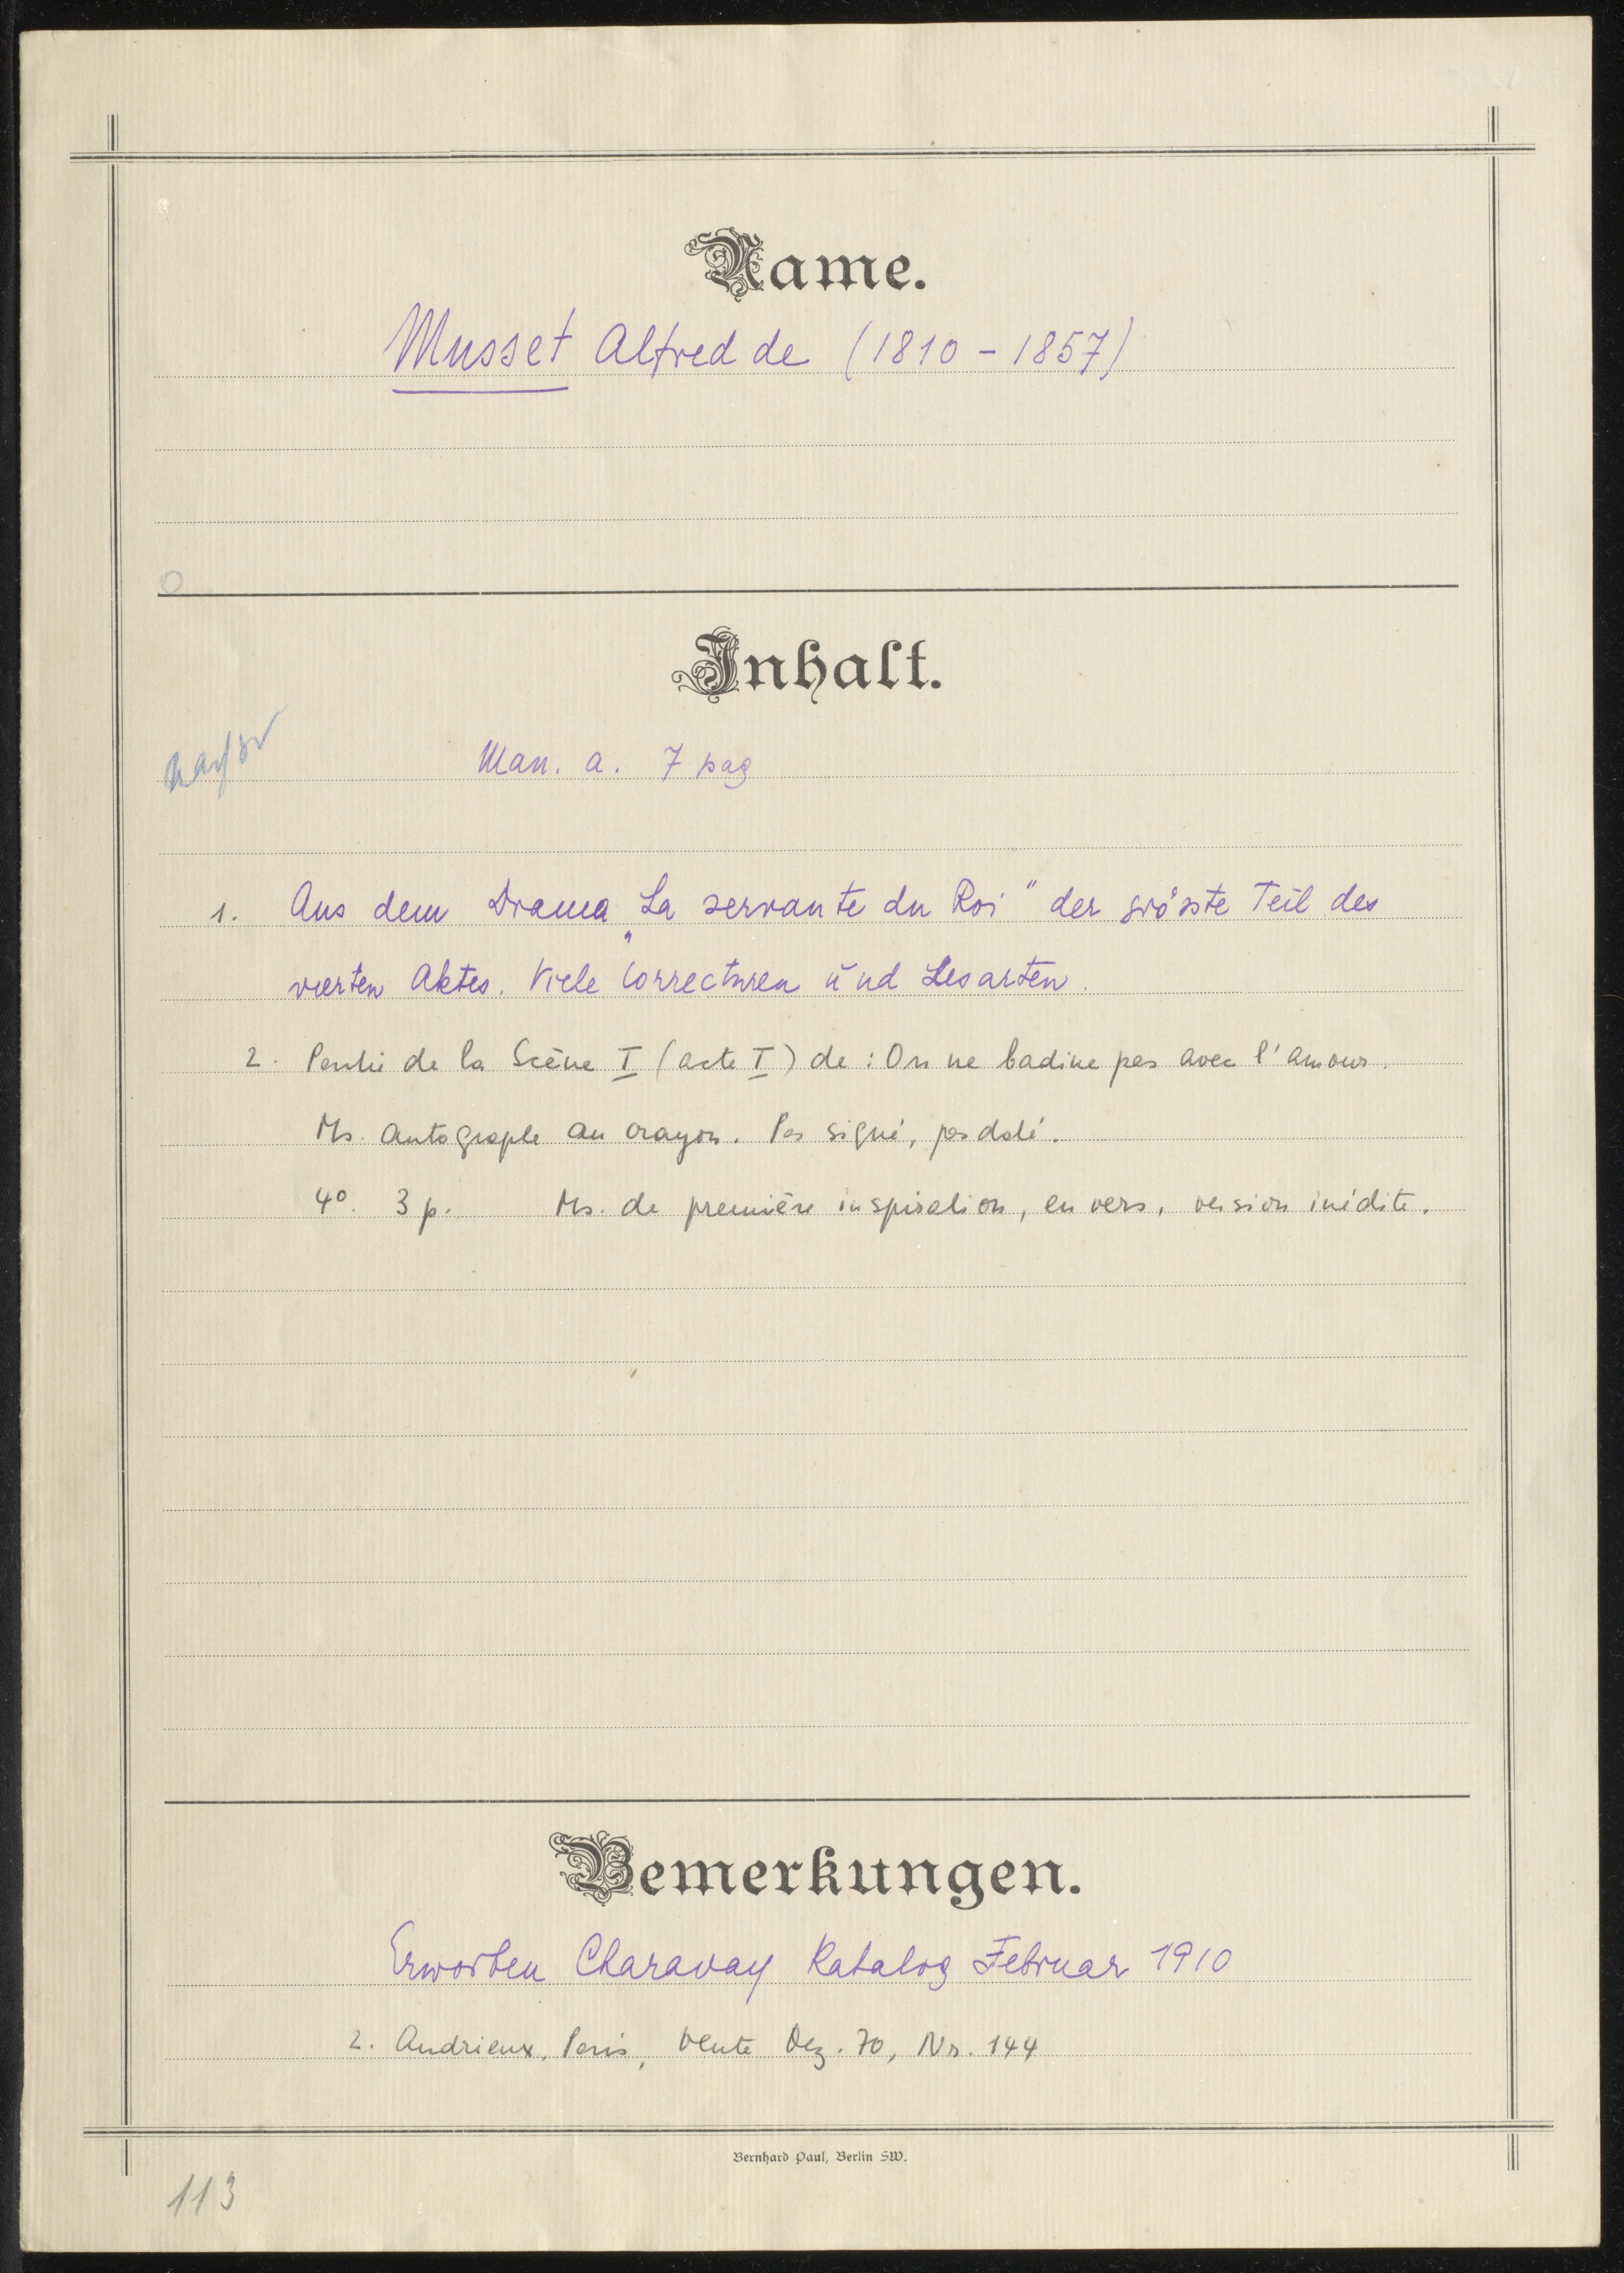 Name.
Musset Alfred de (1810 - 1857)
Inhalt.
Man. a. 7 pag
1. Aus dem Drama „La servante du Roi" der grösste Teil des
vierten Aktes. Viele Correcturen und Lesarten.
2. Partie de la Scène I (acte I) de : On ne badine pas avec l'amour.
Ms. autographe au crayon. Pas signé, pas daté.
4º. 3 p. Ms. de première inspiration, en vers, version inédite.
Bemerkungen.
Erworben Charavay Katalog Februar 1910
2. Andrieux, Paris, Vente Dez. 70, Nr. 144
Bernhard Paul, Berlin SW.
113